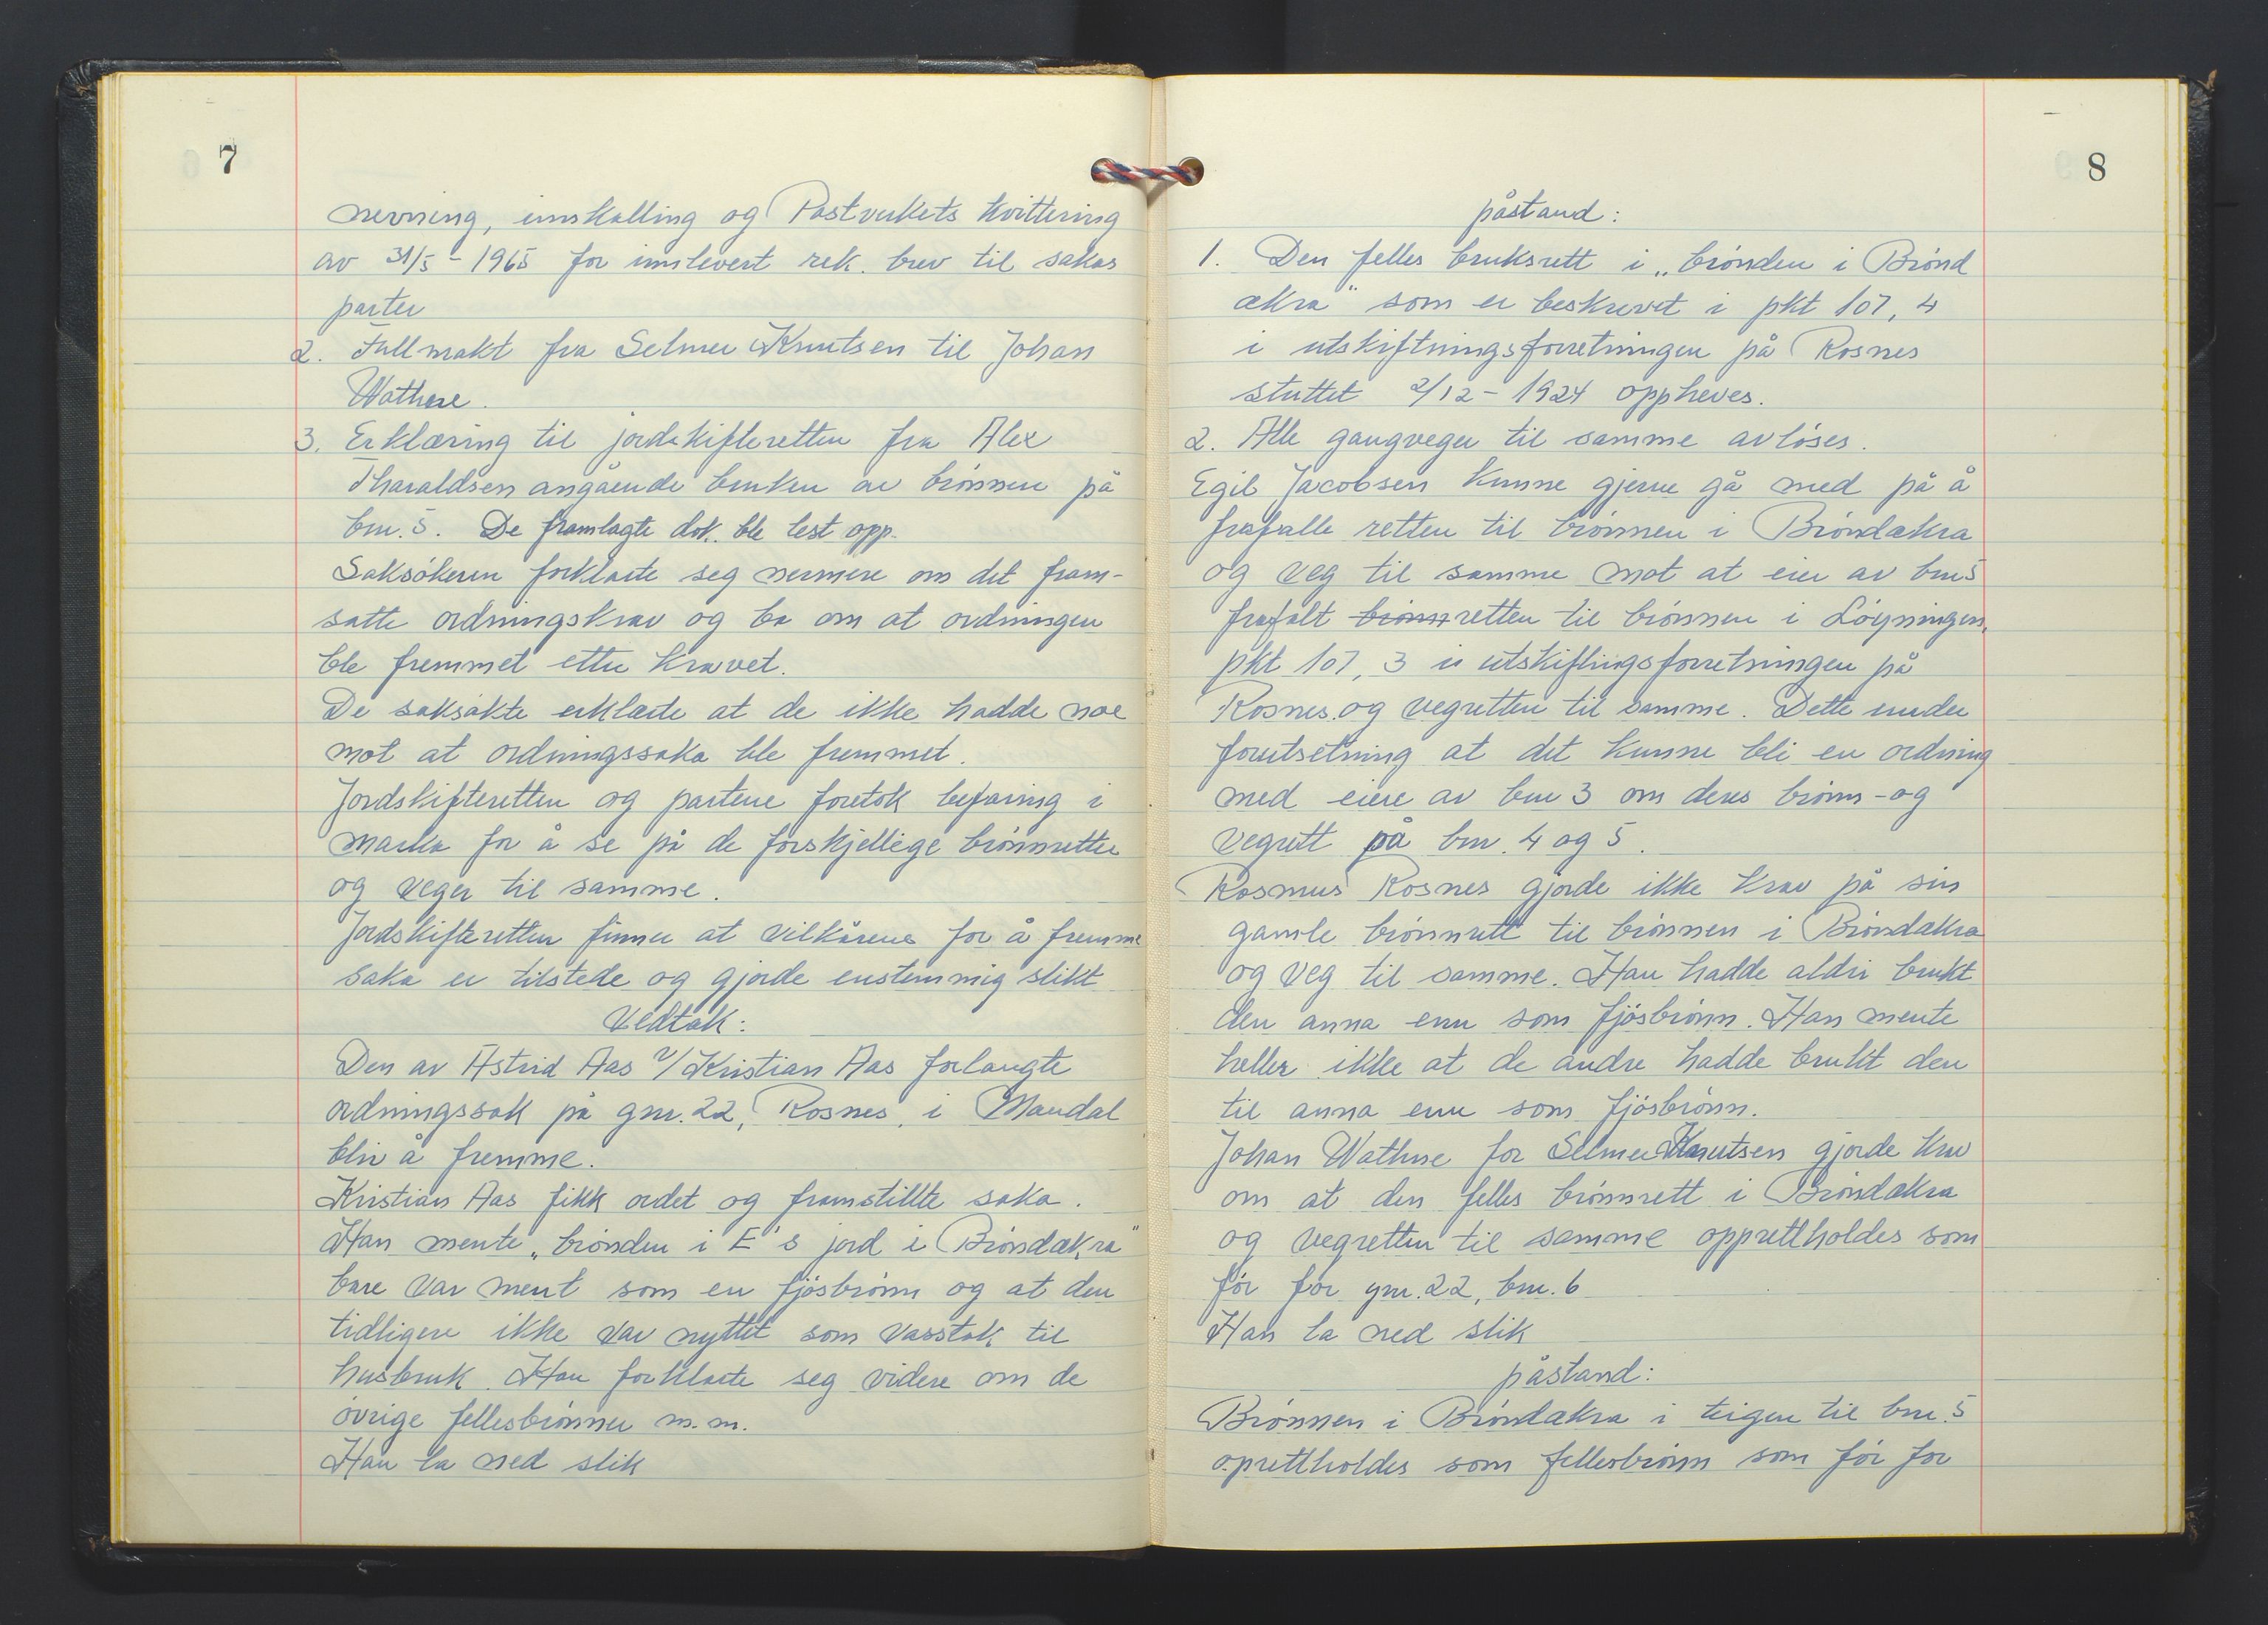 7
nevning, innskalling og Postverkets kvittering
av 31/5 - 1965 for innlevert rek. brev til sakas
parter
2. Fullmakt fra Selmer Knutsen til Johan
Wathne.
3. Erklæring til jordskifteretten fra Alex
Tharaldsen angående bruken av brønnen på
bnr. 5. De framlagte dok. ble lest opp.
Saksøkeren forklarte seg nermere om det fram-
satte ordningskrav og ba om at ordningen
ble fremmet etter kravet.
De saksøkte erklærte at de ikke hadde noe
mot at ordningssaka ble fremmet.
Jordskifteretten og partene foretok befaring i
marka for å se på de forskjellige brønnretter
og veger til samme.
Jordskifteretten finner at vilkårene for å fremme
saka er tilstede og gjorde enstemmig slikt
Vedtak:
Den av Astrid Aas v/Kristian Aas forlangte
ordningssak på gnr. 22, Rosnes, i Mandal
blir å fremme.
Kristian Aas fikk ordet og framstillte saka.
Han mente „brønden i E's jord i Brøndækra"
bare var ment som en fjøsbrønn og at den
tidligere ikke var nyttet som vasstak til
husbruk. Han forklarte seg videre om de
øvrige fellesbrønner m.m.
Han la ned slik
8
påstand:
1. Den felles bruksrett i „brønden i Brønd
ækra" som er beskrevet i pkt 107, 4
i utskiftningsforretningen på Rosnes
sluttet 2/12 - 1924 oppheves.
2. Alle gangveger til samme avløses.
Egil Jacobsen kunne gjerne gå med på å
frafalle retten til brønnen i Brøndækra
og veg til samme mot at eier av bnr 5
frafalt brønnretten til brønnen i Løyningen,
pkt 107, 3 i utskiftingsforretningen på
Rosnes og vegretten til samme. Dette under
forutsetning at det kunne bli en ordning
med eiere av bnr 3 om deres brønn- og
vegrett på bnr. 4 og 5.
Rasmus Rosnes gjorde ikke krav på sin
gamle brønnrett til brønnen i Brøndækra
og veg til samme. Han hadde aldri brukt
den anna enn som fjøsbrønn. Han mente
heller ikke at de andre hadde brukt den
til anna enn som fjøsbrønn.
Johan Wathne for Selmer Knutsen gjorde krav
om at den felles brønnrett i Brøndækra
og vegretten til samme opprettholdes som
før for gnr. 22, bnr. 6
Han la ned slik
påstand:
Brønnen i Brøndækra i teigen til bnr. 5
oprettholdes som fellesbrønn som før for